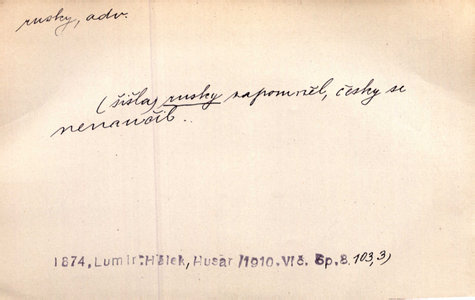 rusky, adv.
(Šišlaj rusky zapomněl, česky se
nenaučil..
1874, Lumír: Hálek, Husar /1910. Vlč. Sp. 8. 103,3)